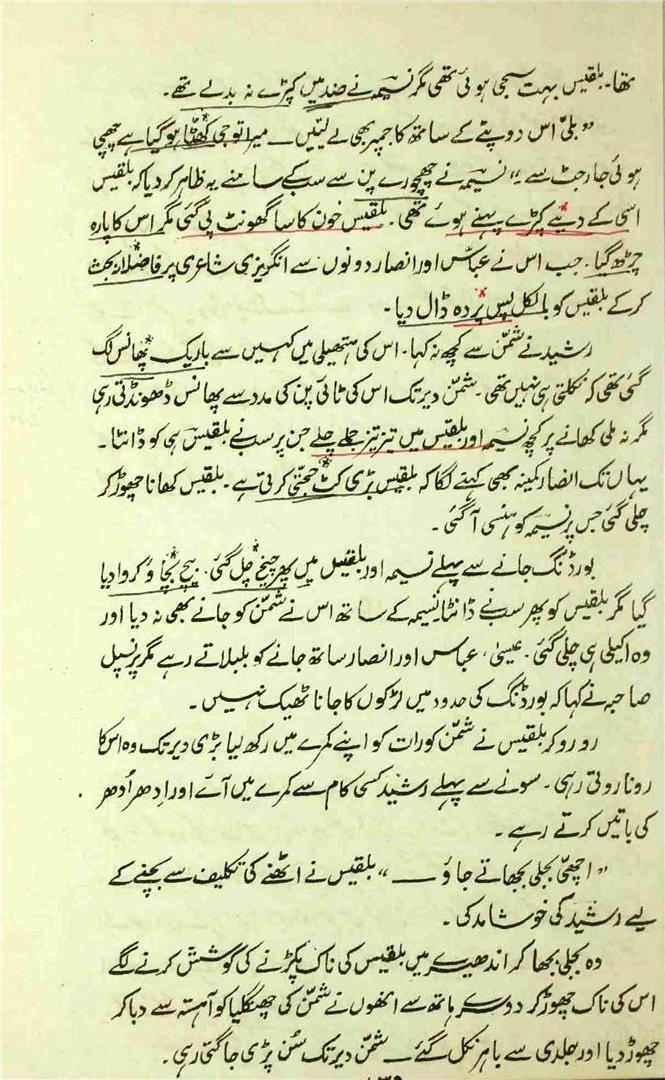 تھا۔ بلقیس بہت سجی ہوئی تھی مگر نسیمہ نے ضد میں کپڑے نہ بدلے تھے۔
”بلّی اس دوپٹے کے ساتھ کا جمپر بھی لے لیتیں ــ میرا تو جی کھٹا ہو گیا ہے چھپی
ہوئی جارجٹ سے“ نسیمہ نے چھچھورے پن سے سب کے سامنے یہ ظاہر کر دیا کہ بلقیس
اسی کے دیئے کپڑے پہنے ہوئے تھی۔ بلقیس خون کا سا گھونٹ پی گئی مگر اس کا پارہ
چڑھ گیا۔ جب اس نے عباس اور انصار دونوں سے انگریزی شاعری پر فاضلانہ بحث
کر کے بلقیس کو بالکل پس پردہ ڈال دیا۔
رشید نے شمّن سے کچھ نہ کہا۔ اس کی ہتھیلی میں کہیں سے باریک پھانس لگ
گئی تھی کہ نکلتی ہی نہیں تھی۔ شمّن دیر تک اس کی ٹائی پن کی مدد سے پھانس ڈھونڈتی رہی
مگر نہ ملی کھانے پر کچھ نسیمہ اور بلقیس میں تیز تیز جملے چلے جن پر سب نے بلقیس ہی کو ڈانٹا۔
یہاں تک انصار کمینہ بھی کہنے لگا کہ بلقیس بڑی کٹ حجتی کرتی ہے۔ بلقیس کھانا چھوڑ کر
چلی گئی جس پر نسیمہ کو ہنسی آ گئی۔
بورڈنگ جانے سے پہلے نسیمہ اور بلقیس میں پھر چخ چل گئی۔ بیچ بچاؤ کروا دیا
گیا مگر بلقیس کو پھر سب نے ڈانٹا نسیمہ کے ساتھ اس نے شمّن کو جانے بھی نہ دیا اور
وہ اکیلی ہی چلی گئی۔ عیسیٰ، عباس اور انصار ساتھ جانے کو بلبلاتے رہے مگر پرنسپل
صاحبہ نے کہا کہ بورڈنگ کی حدود میں لڑکوں کا جانا ٹھیک نہیں۔
رو رو کر بلقیس نے شمّن کو رات کو اپنے کمرے میں رکھ لیا بڑی دیر تک وہ اس کا
رونا روتی رہی۔ سونے سے پہلے رشید کسی کام سے کمرے میں آئے اور ادھر اُدھر
کی باتیں کرتے رہے۔
”اچھی بجلی بجھاتے جاؤ ــ“ بلقیس نے اٹھنے کی تکلیف سے بچنے کے
لیے رشید کی خوشامد کی۔
وہ بجلی بجھا کر اندھیرے میں بلقیس کی ناک پکڑنے کی کوشش کرنے لگے
اس کی ناک چھوڑ کر دوسرے ہاتھ سے انھوں نے شمّن کی چھنگلیا کو آہستہ سے دبا کر
چھوڑ دیا اور جلدی سے باہر نکل گئے ــ شمّن دیر تک سُن پڑی جاگتی رہی۔